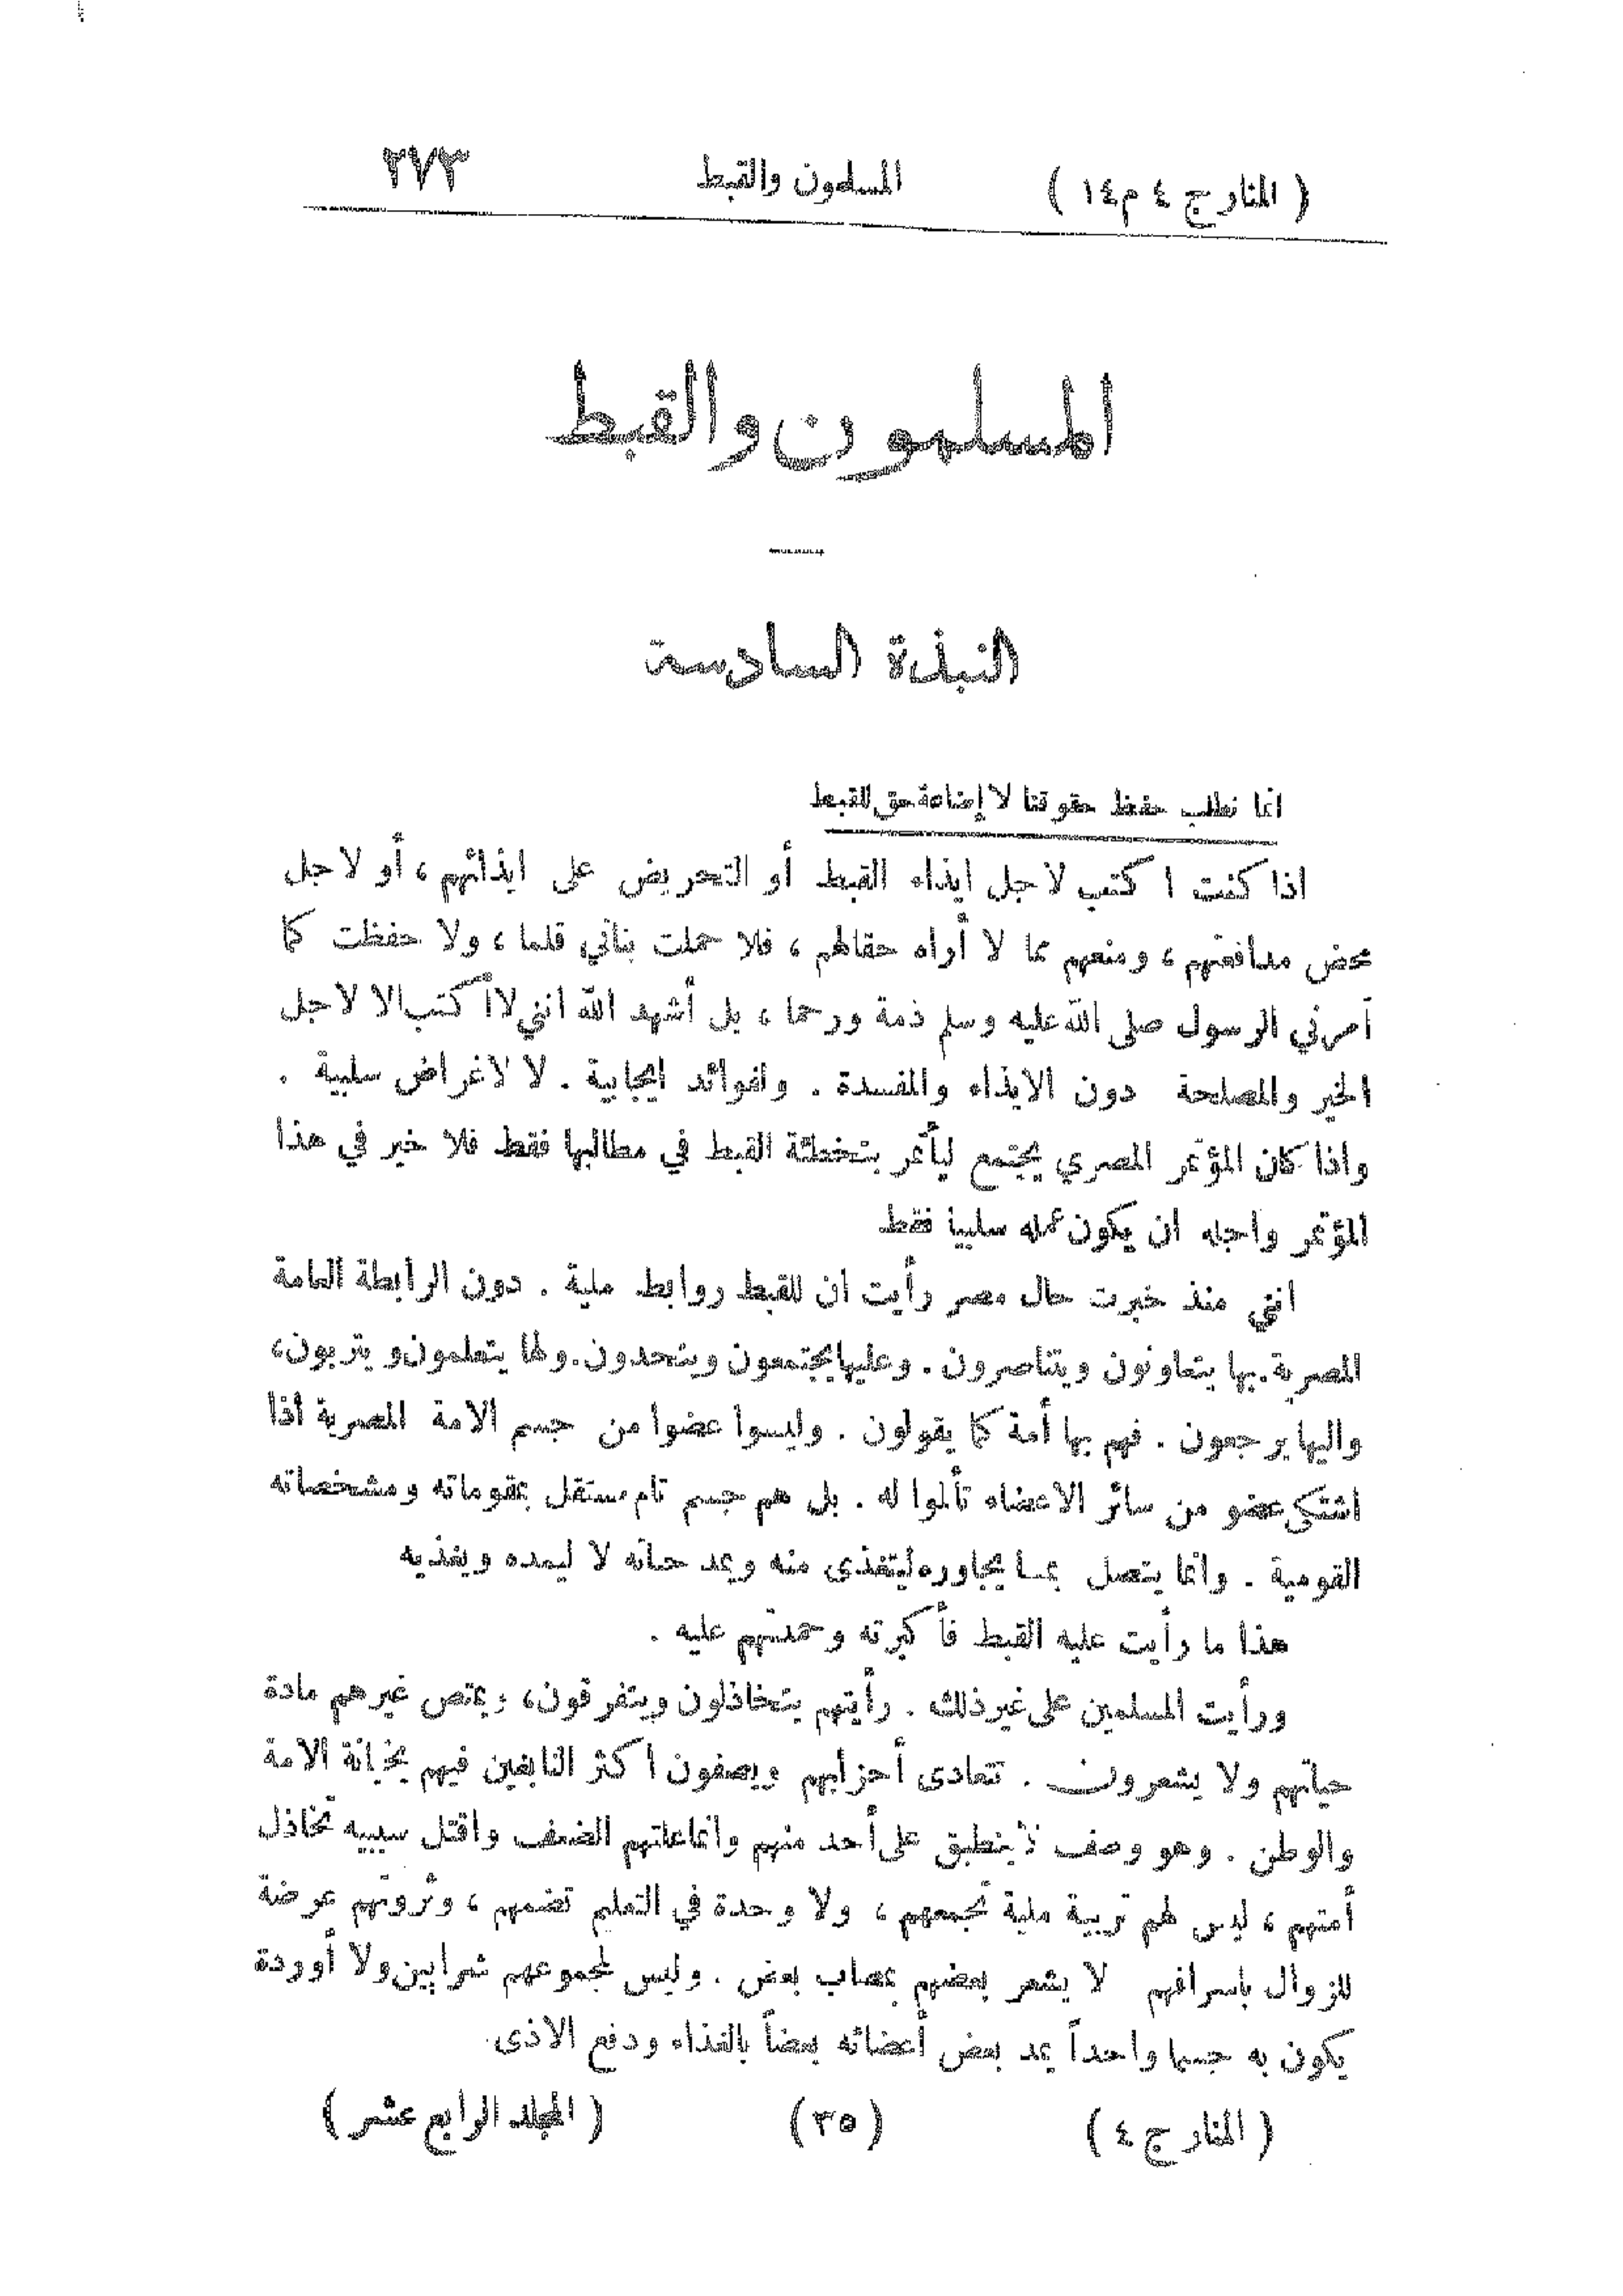 ( المنار ج ٤ م ١٤ ) المسلمون والقبط ٢٧٣
المسلمون والقبط
النبذة السادسة
انما نطلب حفظ حقوقنا لا إضاعة حق للقبط
اذا كنت اكتب لاجل ايذاء القبط أو التحريض على ايذائهم ، أو لاجل
محض مدافعتهم ، ومنعهم مما لا أراه حقا لهم ، فلا حملت بناني قلما ، ولا حفظت كما
أمرني الرسول صلى الله عليه وسلم ذمة ورحما ، بل أشهد الله انني لا أكتب الا لاجل
الخير والمصلحة دون الايذاء والمفسدة . ولفوائد ايجابية . لا لاغراض سلبية .
واذا كان المؤتمر المصري يجتمع ليأتمر بتخطئة القبط في مطالبها فقط فلا خير في هذا
المؤتمر واجله ان يكون عمله سلبيا فقط
انني منذ خبرت حال مصر رأيت ان للقبط روابط ملية . دون الرابطة العامة
المصرية . بها يتعاونون ويتناصرون . وعليها يجتمعون ويتحدون . ولها يتعلمون ويتربون ،
واليها يرجعون . فهم بها أمة كما يقولون . وليسوا عضوا من جسم الامة المصرية اذا
اشتكى عضو من سائر الاعضاء تألموا له . بل هم جسم تام مستقل بمقوماته ومشخصاته
القومية . وانما يتصل بما يجاوره ليتغذى منه ويمد حياته لا ليمده ويغذيه
هذا ما رأيت عليه القبط فأكبرته وحمدتهم عليه .
ورأيت المسلمين على غير ذلك . رأيتهم يتخاذلون ويتفرقون ، ويمتص غيرهم مادة
حياتهم ولا يشعرون . تتعادى أحزابهم ويصفون اكثر النابغين فيهم بخيانة الامة
والوطن . وهو وصف لا ينطبق على أحد منهم وانما علتهم الضعف واقتل سببيه تخاذل
أمتهم ، ليس لهم تربية ملية تجمعهم ، ولا وحدة في التعليم تضمهم ، وثروتهم عرضة
للزوال باسرافهم لا يشعر بعضهم بمصاب بعض . وليس لمجموعهم شرايين ولا أوردة
يكون به جسما واحداً يمد بعض أعضائه بعضاً بالغذاء ودفع الاذى
( المنار ج ٤ ) ( ٣٥ ) ( المجلد الرابع عشر )